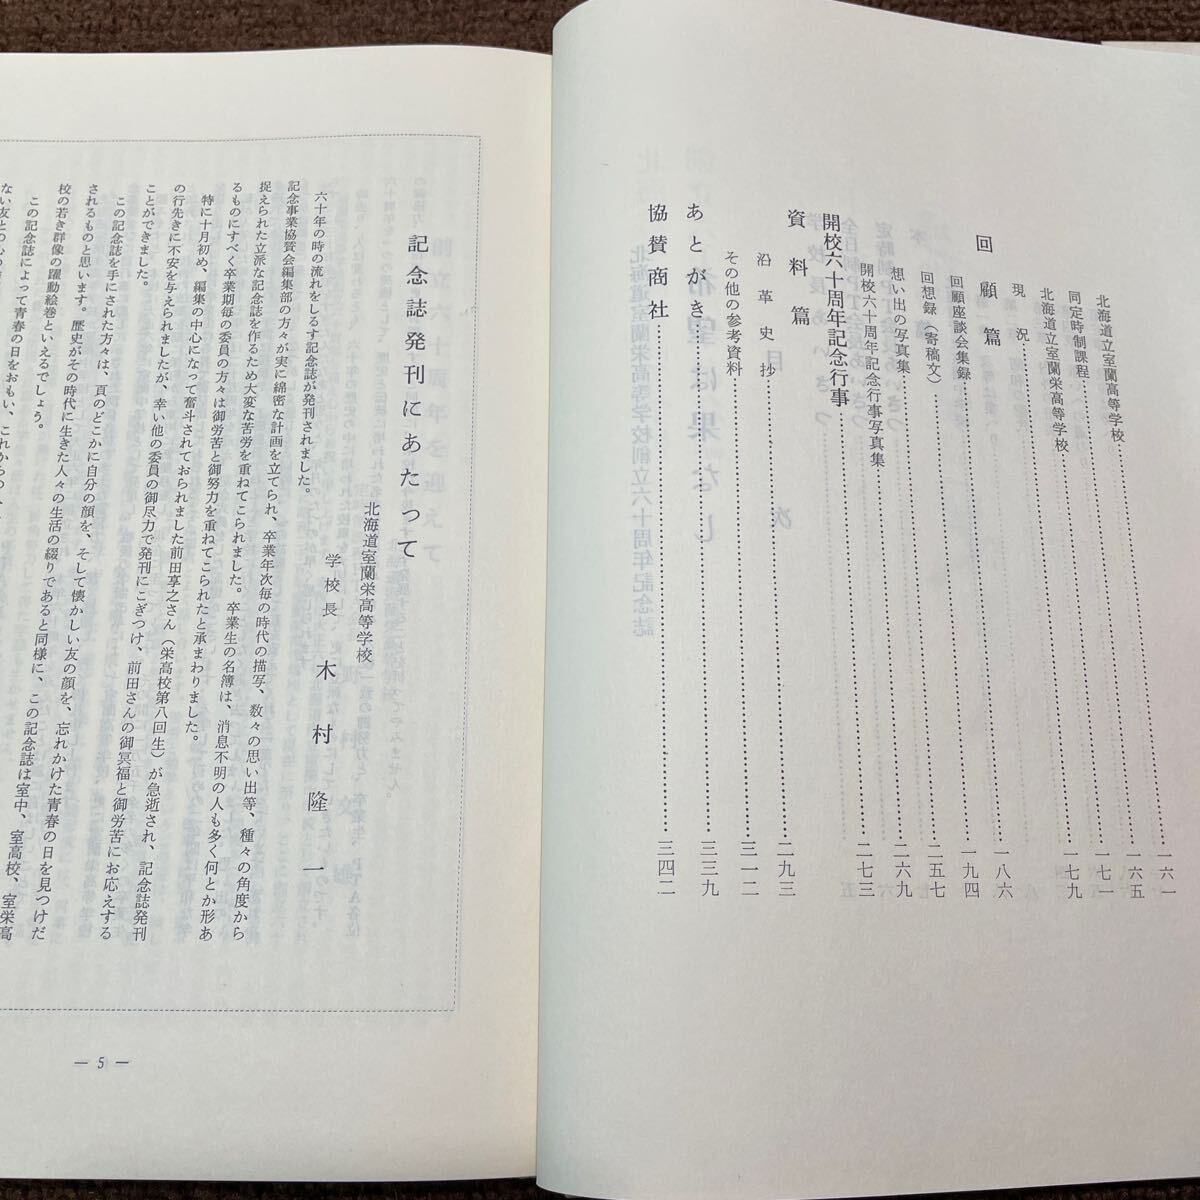 北海道立室蘭高等学校……一六一
同定時制課程……一六五
北海道立室蘭栄高等学校……一七一
現況……一七九
回顧篇……一八六
回顧座談会集録……一九四
回想録（寄稿文）……二五七
想い出の写真集……二六九
開校六十周年記念行事写真集……二七三
開校六十周年記念行事
資料篇……二九三
沿革史抄……三一二
その他の参考資料……三三九
あとがき……三四二
協賛商社
記念誌発刊にあたって
北海道室蘭栄高等学校
学校長 木村隆一
六十年の時の流れをしるす記念誌が発刊されました。
記念事業協賛会編集部の方々が実に綿密な計画を立てられ、卒業年次毎の時代の描写、数々の思い出等、種々の角度から
捉えられた立派な記念誌を作るため大変な苦労を重ねてこられました。卒業生の名簿は、消息不明の人も多く何とか形あ
るものにすべく卒業期毎の委員の方々は御労苦と御努力を重ねてこられたと承まわりました。
特に十月初め、編集の中心になって奮斗されておられました前田享之さん（栄高校第八回生）が急逝され、記念誌発刊
の行先きに不安を与えられましたが、幸い他の委員の御尽力で発刊にこぎつけ、前田さんの御冥福と御労苦にお応えする
ことができました。
この記念誌を手にされた方々は、頁のどこかに自分の顔を、そして懐かしい友の顔を、忘れかけた青春の日を見つけだ
されるものと思います。歴史がその時代に生きた人々の生活の綴りであると同様に、この記念誌は室中、室高校、室栄高
校の若き群像の躍動絵巻といえるでしょう。
この記念誌によって青春の日をおもい、これからの
ない友との心の
— 5 —